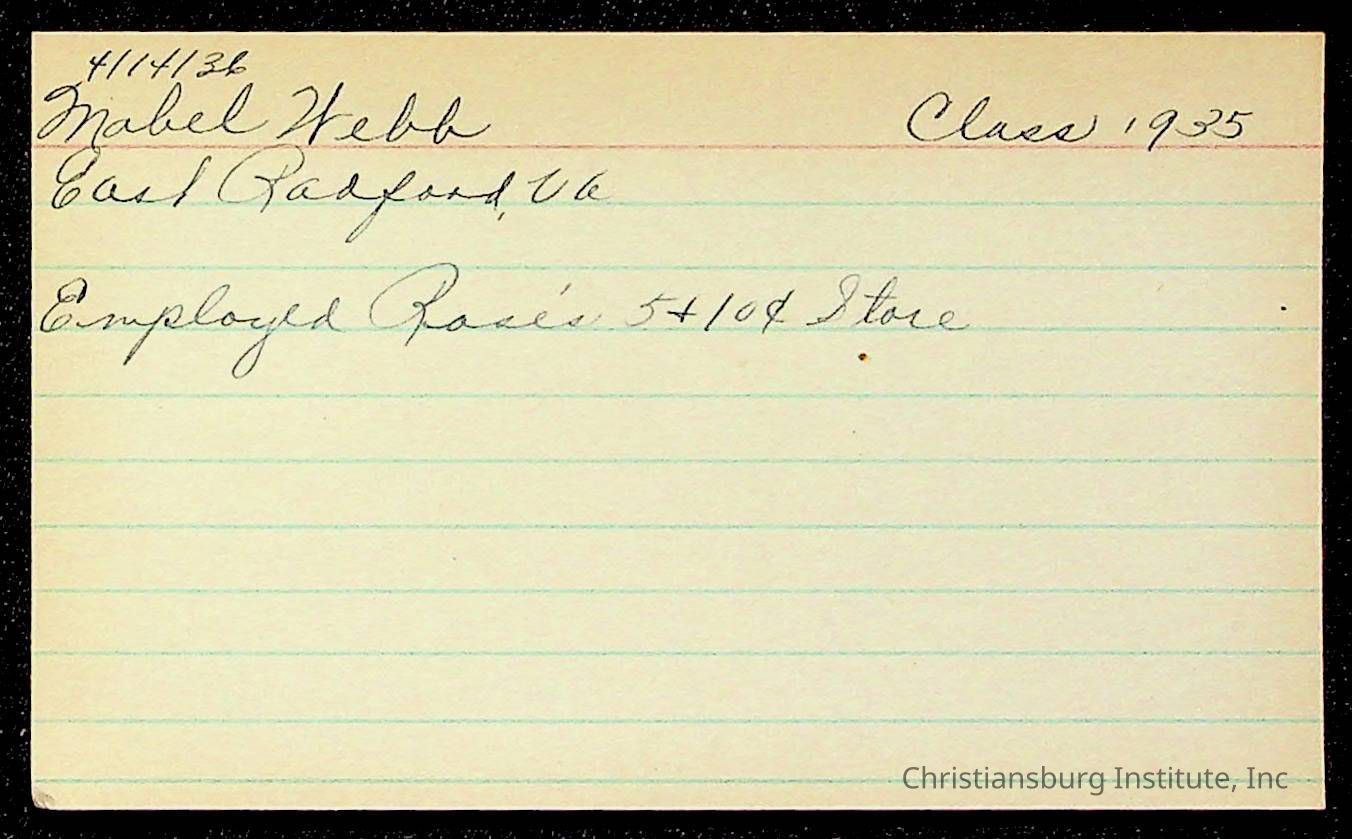 4/14/36
Mabel Webb Class 1935
East Radford, Va
Employed Rose's 5+10¢ Store
Christiansburg Institute, Inc